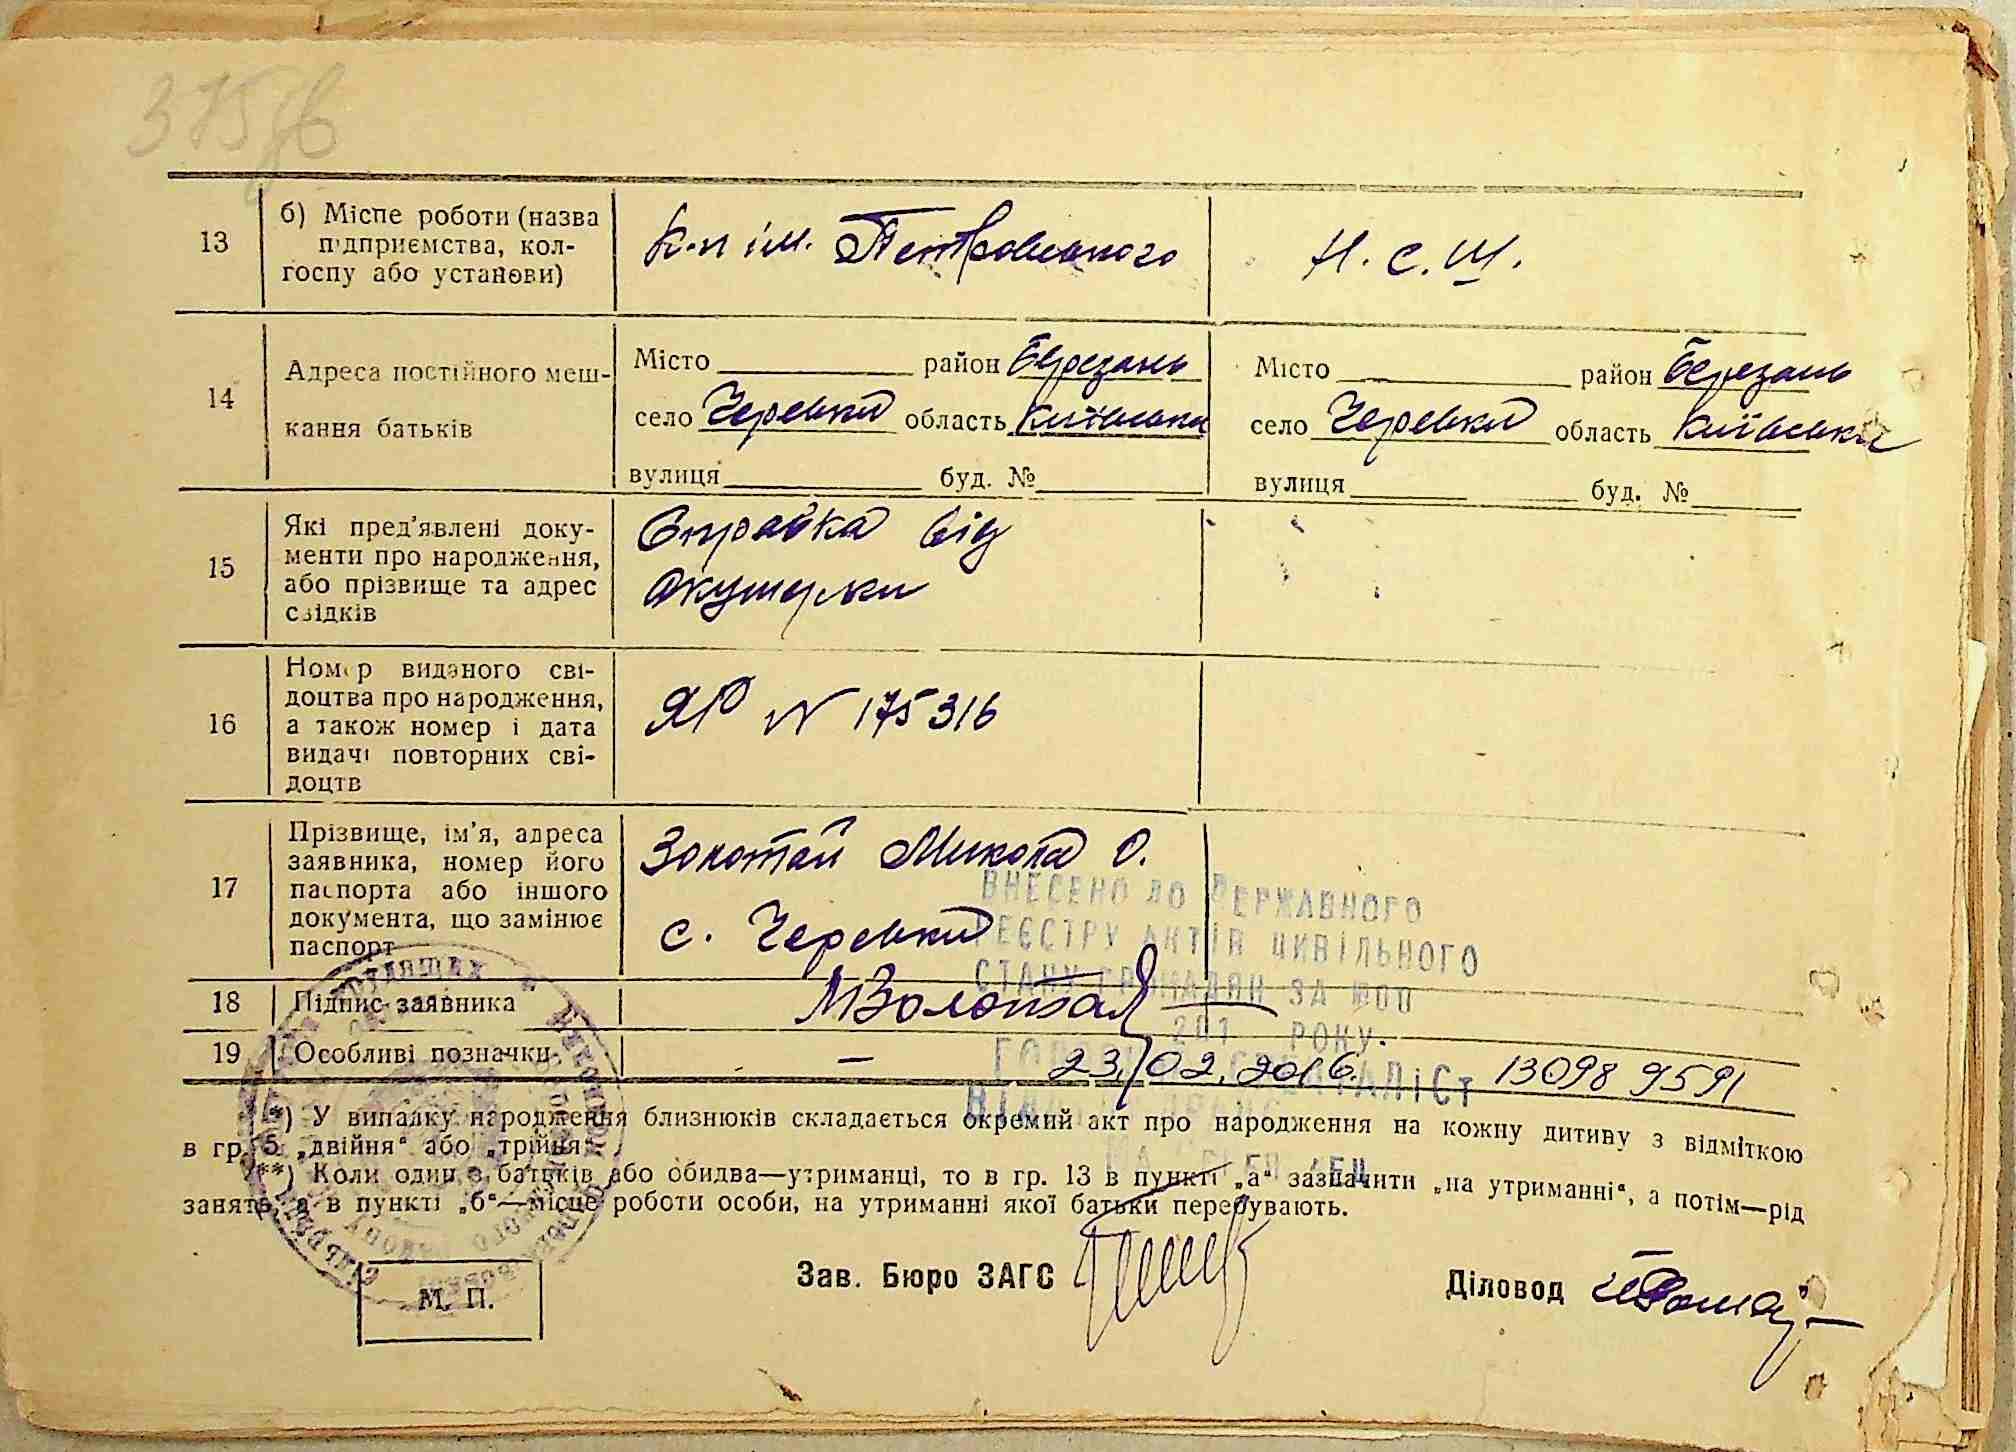 375 зв
13
б) Місце роботи (назва
підприємства, кол-
госпу або установи)
К-п ім. Петровського
Н. С. Ш.
14
Адреса постійного меш-
кання батьків
Місто район Березань
село Черевки область Київська
вулиця буд. №
Місто район Березань
село Черевки область Київська
вулиця буд. №
15
Які пред'явлені доку-
менти про народження,
або прізвище та адрес
свідків
Справка від
Акушерки
16
Номер виданого сві-
доцтва про народження,
а також номер і дата
видачі повторних сві-
доцтв
ЯР N 175316
17
Прізвище, ім'я, адреса
заявника, номер його
паспорта або іншого
документа, що замінює
паспорт
Золотай Микола О.
с. Черевки
ВНЕСЕНО ДО ДЕРЖАВНОГО
РЕЄСТРУ АКТІВ ЦИВІЛЬНОГО
СТАНУ ГРОМАДЯН ЗА
201 РОКУ.
18
Підпис заявника
МЗолотай
19
Особливі позначки
—
23/02.2016. 13098 9591
*) У випадку народження близнюків складається окремий акт про народження на кожну дитину з відміткою
в гр. 5 „двійня“ або „трійня“.
**) Коли один з батьків або обидва—утриманці, то в гр. 13 в пункті „а“ зазначити „на утриманні“, а потім—рід
занять, а в пункті „б“—місце роботи особи, на утриманні якої батьки перебувають.
Зав. Бюро ЗАГС
Діловод
М. П.